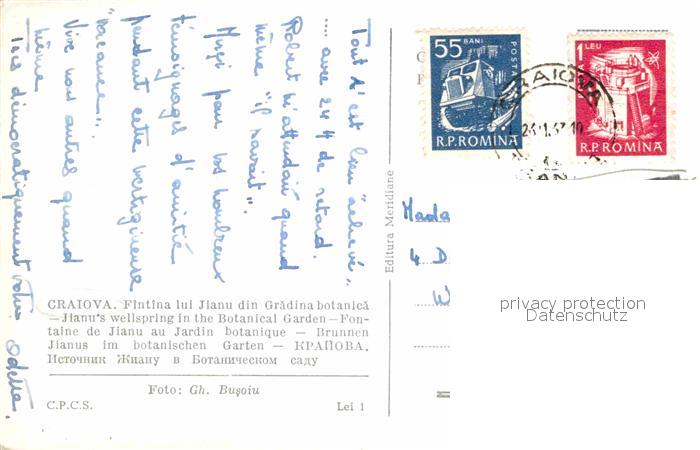 Tout s'est bien "achevé"
.... avec 24 h de retard.
Robert m'attendait quand
même "il savait".
Merçi pour vos nombreux
témoignages d'amitié
pendant cette vertigineuse
"vacance".
Vive nous autres quand
même
Très démocratiquement votre Odette.
CRAIOVA. Fîntîna lui Jianu din Grădina botanică
— Jianu's wellspring in the Botanical Garden — Fon-
taine de Jianu au Jardin botanique — Brunnen
Jianus im botanischen Garten — КРАЙОВА.
Источник Жиану в Ботаническом саду
Foto: Gh. Bușoiu
C.P.C.S.
Lei 1
Editura Meridiane
55 BANI
POSTA
R.P.ROMINA
1 LEU
R.P.ROMINA
CRAIOVA
Mada
4
privacy protection
Datenschutz